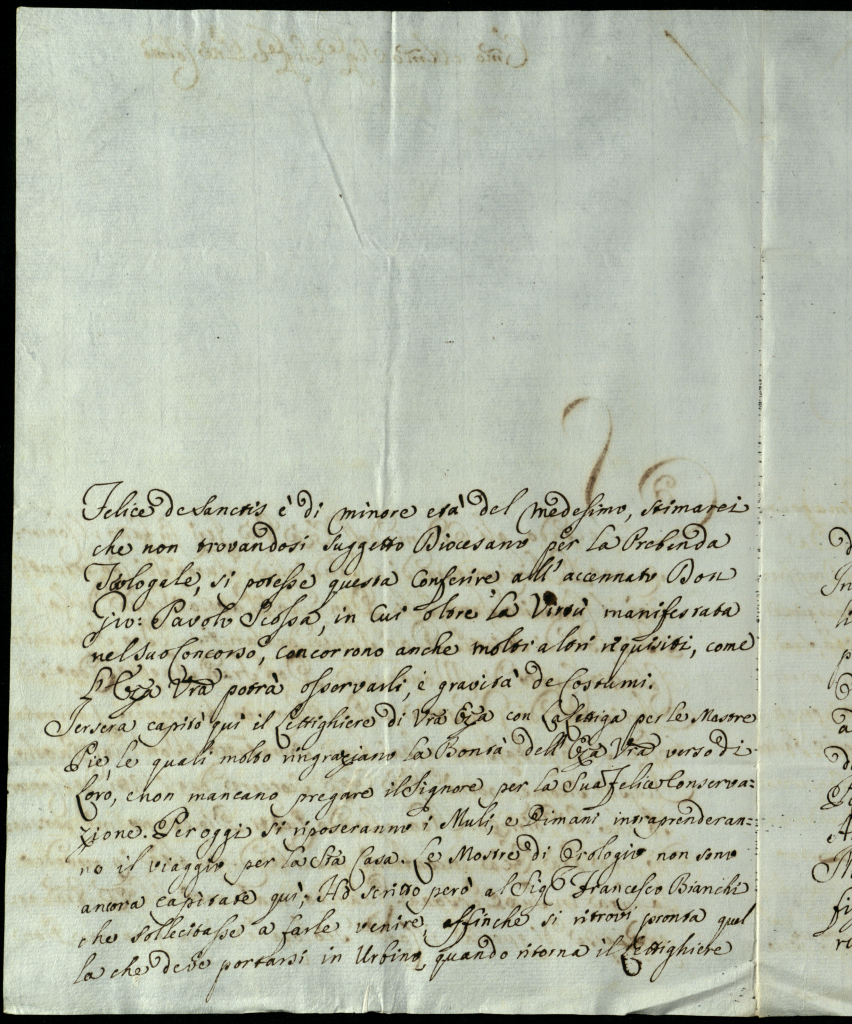 Felice de Sanctis è di minore età del medesimo, stimarei
che non trovandosi suggetto Diocesano per la Prebenda
Teologale, si potesse questa Conferire all' accennato Don
Gio: Pavolo Scossa, in Cui oltre la Virtù manifestata
nel suo Concorso, concorrono anche molti altri riquisiti, come
l' Ecza Vra potrà osservarli, e gravità de Costumi.
Jersera capitò qui il Lettighiere di Vra Ecza con La lettiga per le Mastre
Pie, le quali molto ringraziano la Bontà dell' Ecza Vra verso di
Loro, e non mancano pregare il Signore per la Sua felice Conserva=
zione. Per oggi si riposeranno i Muli, e Dimani intraprenderan=
no il viaggio per la Sta Casa. Le Mostre di Orologio non sono
ancora capitate qui; Hò scritto però al Sigr Francesco Bianchi
che sollecitasse a farle venire, affinchè si ritrovi pronta quel
la che deve portarsi in Urbino, quando ritorna il Lettighiere